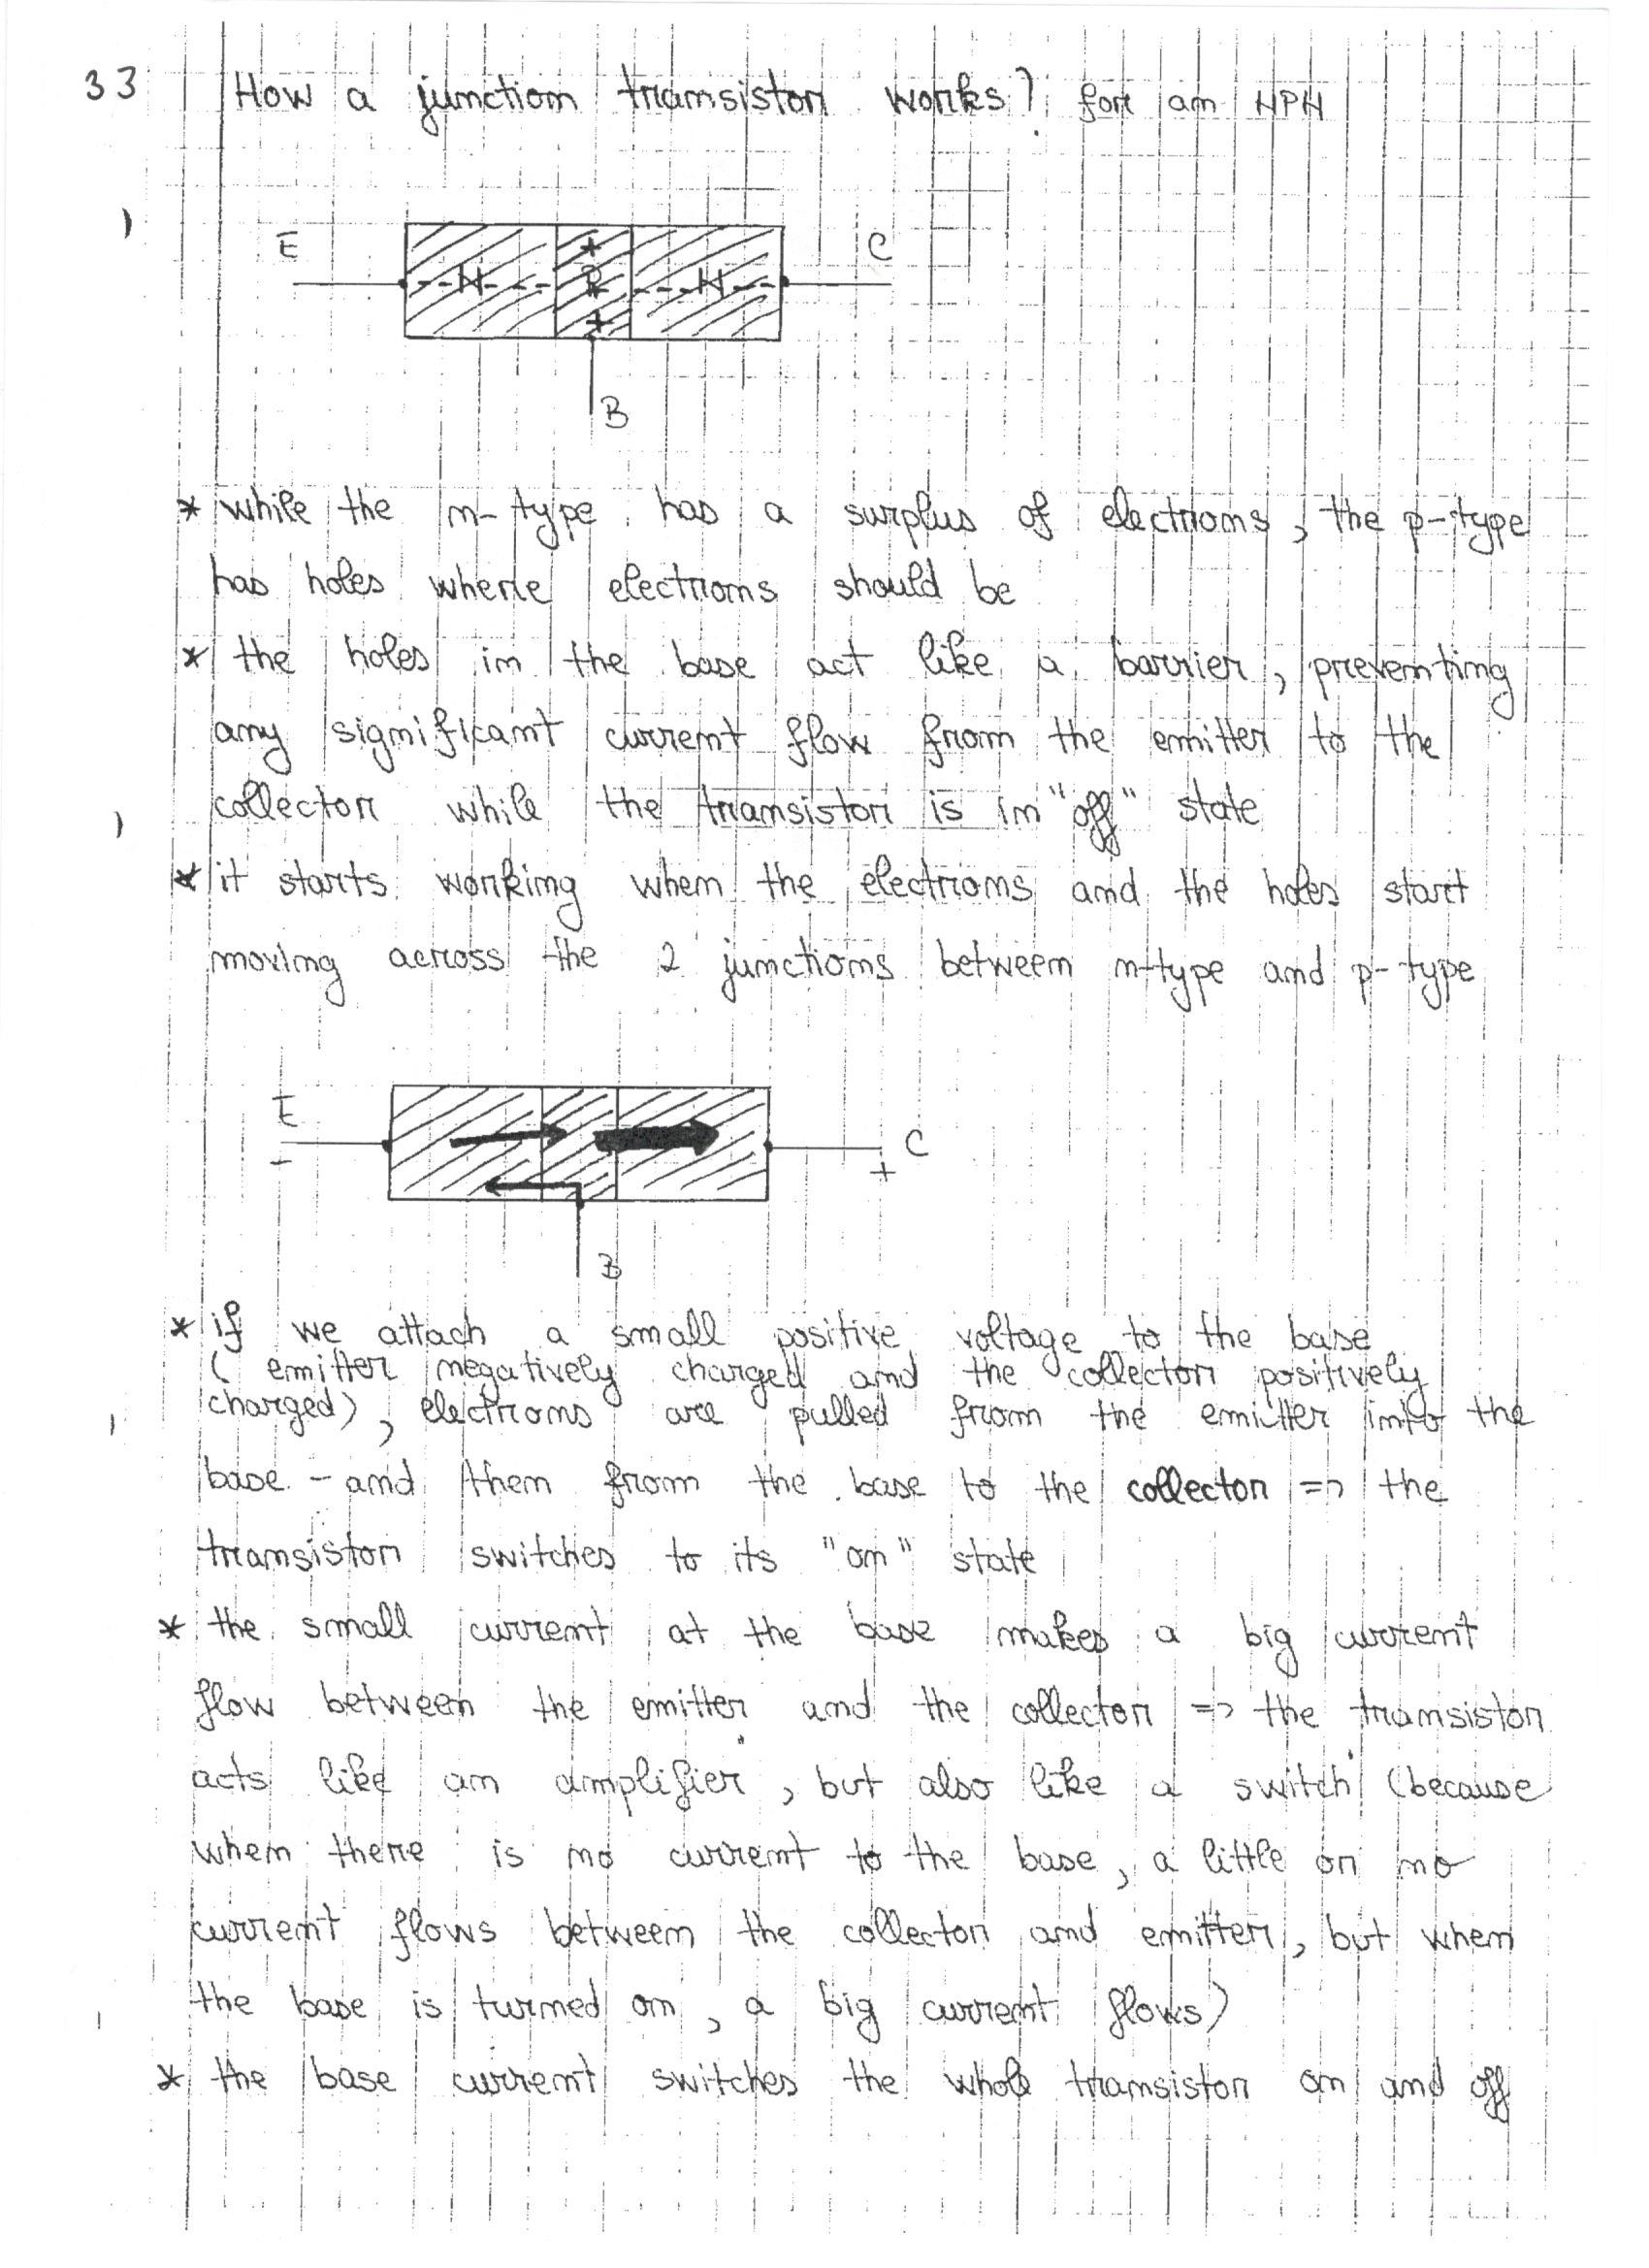 33 How a junction transistor works? for an NPN
E C
N P N
B
* while the n-type has a surplus of electrons, the p-type
has holes where electrons should be
* the holes in the base act like a barrier, preventing
any significant current flow from the emitter to the
collector while the transistor is in "off" state
* it starts working when the electrons and the holes start
moving across the 2 junctions between n-type and p-type
E
- C
+
B
* if we attach a small positive voltage to the base
( emitter negatively charged and the collector positively
charged), electrons are pulled from the emitter into the
base - and then from the base to the collector => the
transistor switches to its "on" state
* the small current at the base makes a big current
flow between the emitter and the collector => the transistor
acts like an amplifier, but also like a switch (because
when there is no current to the base, a little or no
current flows between the collector and emitter, but when
the base is turned on, a big current flows)
* the base current switches the whole transistor on and off